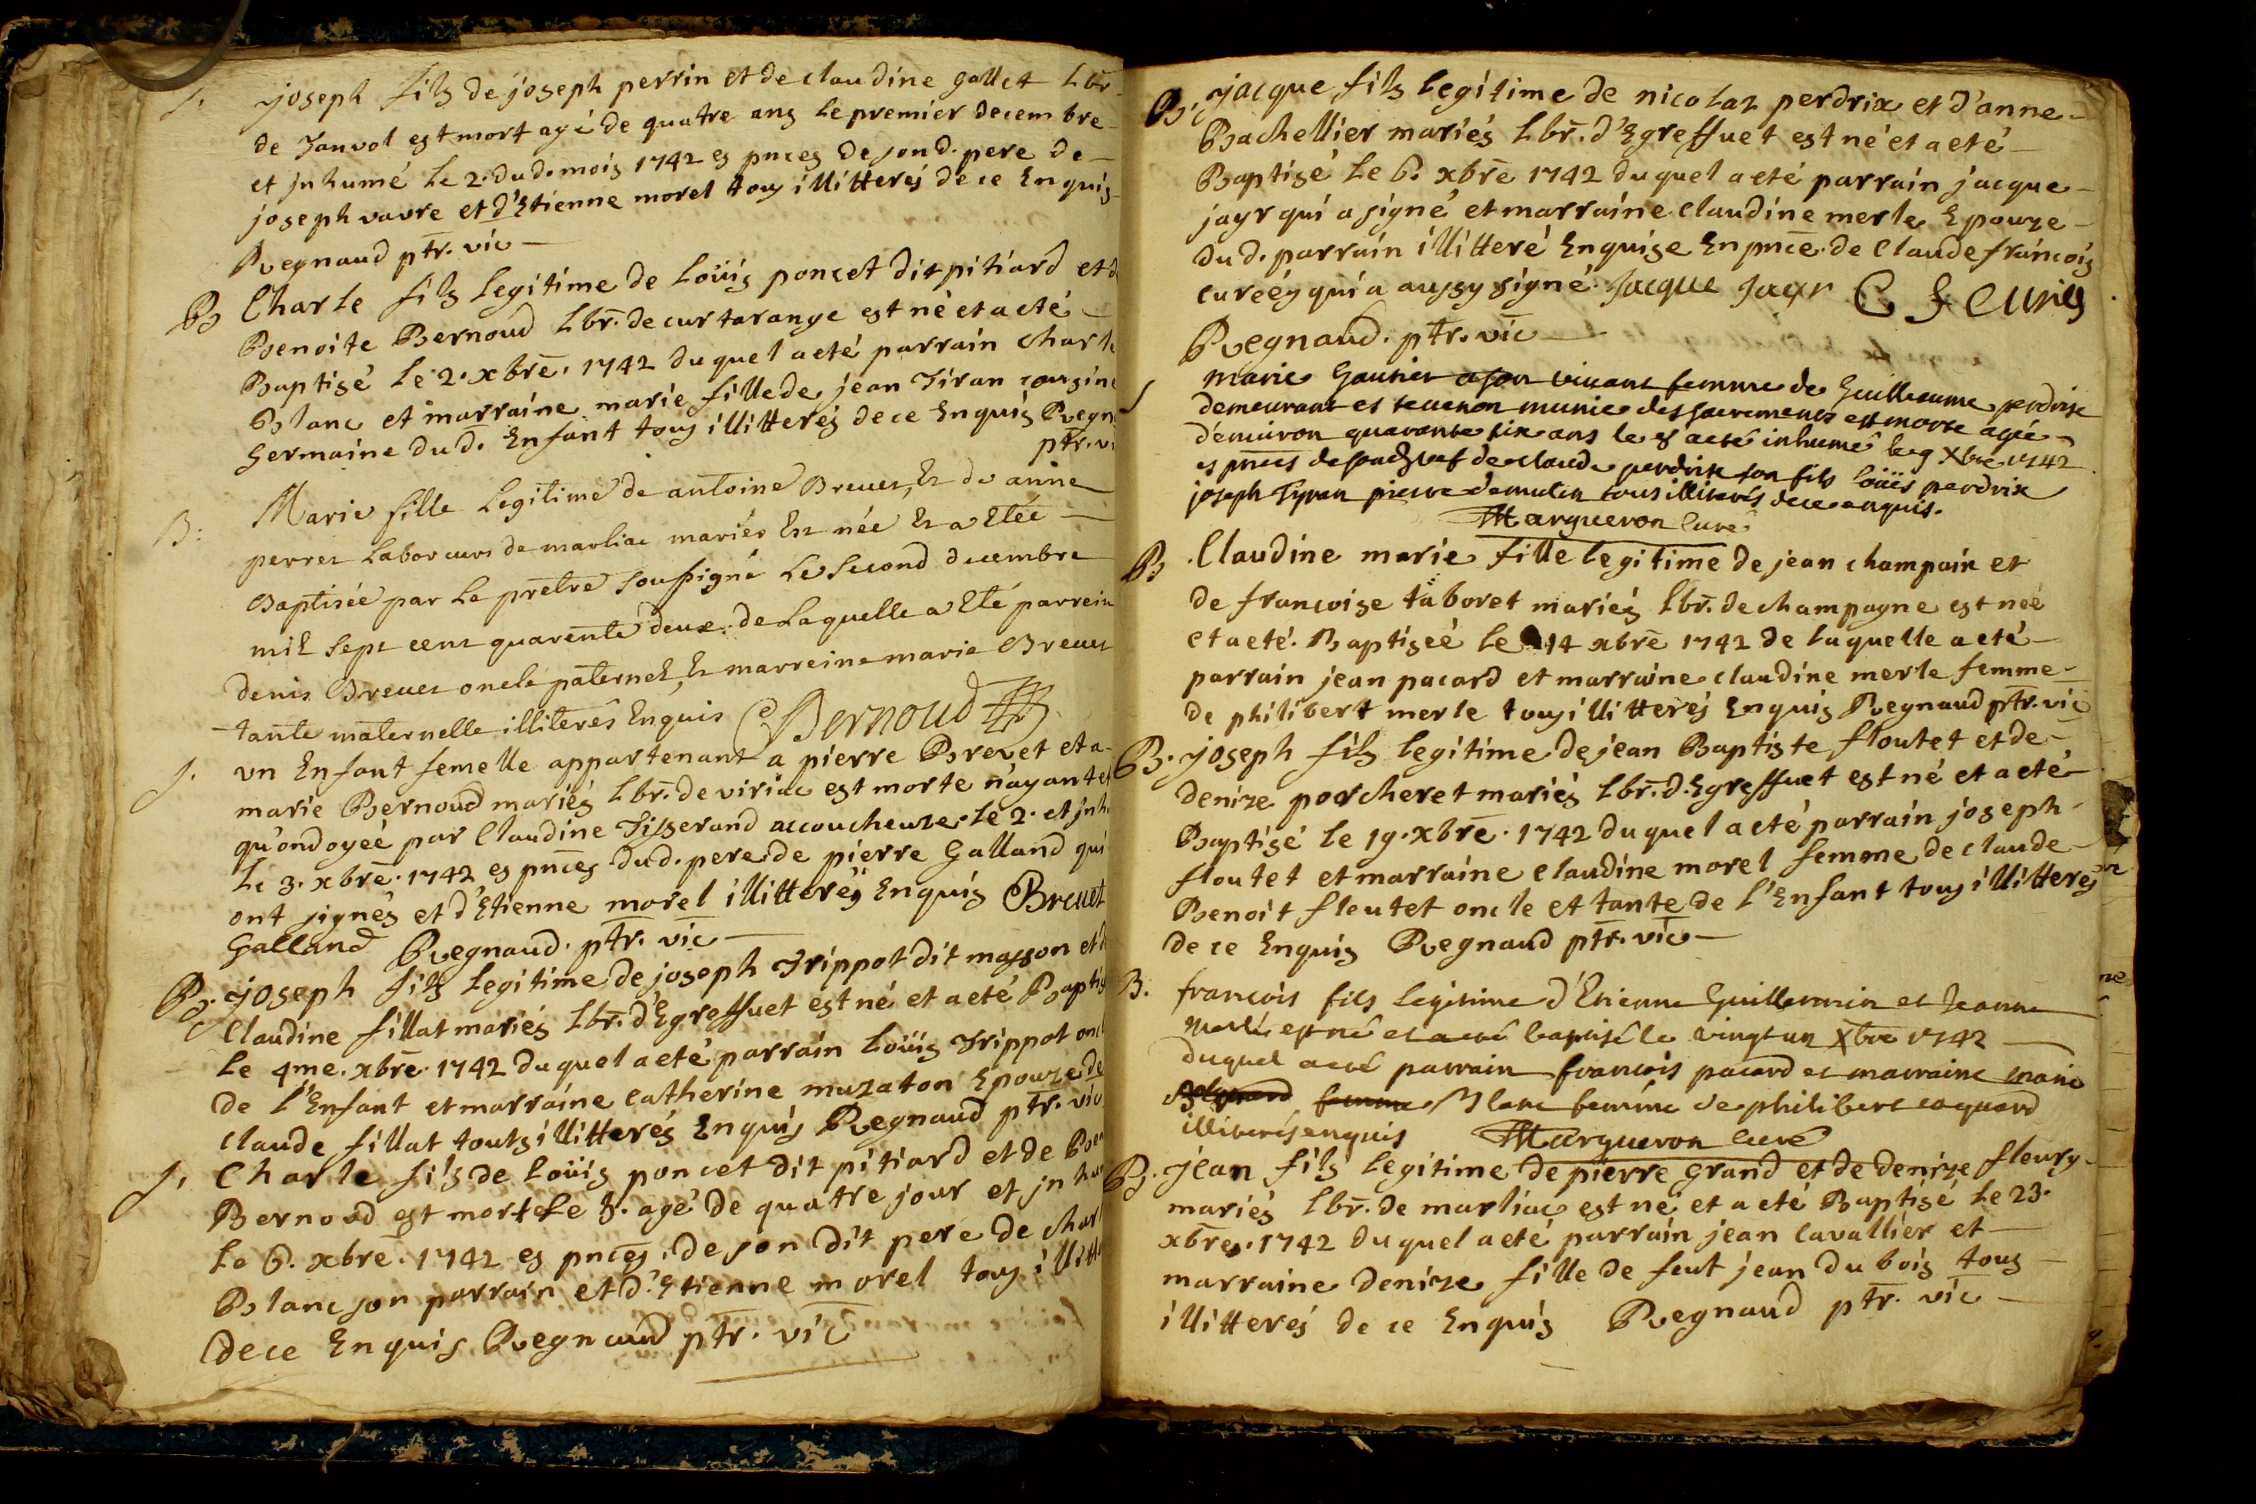 S. joseph fils de joseph perrin et de claudine gallet Lbr.
de Janvol est mort agé de quatre ans le premier decembre
et inhumé le 2. du d. mois 1742 es pnces de son d. pere de
joseph vavre et d'Etienne morel tous illitterés de ce Enquis
Regnaud ptr. vic
B Charle fils legitime de Loüis poncet dit pitiard et d
Benoite Bernoud Lbr. de curtarange est né et a eté
Baptisé le 2. xbre. 1742 du quel a eté parrain Charle
Blanc et marraine marie fille de jean Tiran cousine
germaine du d. Enfant tous illitterés de ce Enquis Regn
ptr. vi
B: Marie fille Legitime de antoine Brevet, et de anne
perret Laboreurs de marliac mariés est née et a Eté
Baptisée par le prêtre soussigné Le Second decembre
mil sept cent quarente deux: de Laquelle a Eté parrein
denis Brevet oncle paternel, et marreine marie Brevet
tante maternelle illiterés Enquis Bernoud
S. un Enfant femelle appartenant a pierre Brevet et a
marie Bernoud mariés Lbr. de viriac est morte n'ayant et
qu'ondoyeé par Claudine Tisserand accoucheuse le 2. et inh
le 3. xbre. 1742 es pnces du d. pere de pierre Galland qui
ont signés et d'Etienne morel illitterés Enquis Brevet
Galland Regnaud. ptr. vic
B. joseph fils legitime de joseph Trippot dit masson et d
Claudine fillat mariés Lbr. d'Egreffuet est né et a eté Baptis
le 4me. xbre. 1742 du quel a eté parrain Loüis Trippot oncl
de l'Enfant et marraine catherine muzaton Epouze de
claude fillat touts illitterés Enquis Regnaud ptr. vic
S. Charle fils de Loüis poncet dit pitiard et de Ben
Bernoud est mort le 5. agé de quatre jour et in hu
le 6. xbre. 1742 es pnces. de son dit pere de char
Blanc son parrain et d'Etienne morel tous illitt
de ce Enquis Regnaud ptr. vic
B. jacque fils legitime de nicolaz perdrix et d'anne
Bachellier mariés Lbr. d'Egreffuet est né et a eté
Baptisé le 6. xbre 1742 du quel a eté parrain jacque
jayr qui a signé et marraine claudine merle Epouze
du d. parrain illitteré Enquise En pnce. de Claude francois
cureéy qui a aussy signé. Jacque Jayr C F Curiey
Regnaud. ptr. vic
S marie Gautier a son vivant femme de Guillaume perdrix
demeurant et munie des sacrements est morte agée
d'environ quarante six ans le 8 a eté inhumé le 9 Xbre 1742
es pnces de Claude perdrix son fils loüis perdrix
joseph Tyran pierre demulin tous illiterés de ce enquis.
Margueron Curé
B Claudine marie fille legitime de jean champain et
de francoise taboret mariés Lbr. de champagne est neé
et a eté. Baptiseé le 14 xbre 1742 de laquelle a eté
parrain jean pacard et marraine claudine merle femme
de philibert merle tous illitterés Enquis Regnaud ptr. vic
B. joseph fils legitime de jean Baptiste floutet et de
denize porcheret mariés Lbr. d.Egreffuet est né et a eté
Baptisé le 19. xbre. 1742 du quel a eté parrain joseph
floutet et marraine claudine morel femme de claude
Benoit floutet oncle et tante de l'Enfant tous illitteres
de ce Enquis Regnaud ptr. vic
B. francois fils legitime d'Etienne Guillermin et Jeanne
Merle est né et a eté baptisé le vingt un Xbre 1742
duquel a eté parrain francois pacard et marraine marie
femme Blanc femme de philibert coquard
illiterés enquis Margueron curé
B. jean fils legitime de pierre grand et de denize fleury
mariés Lbr. de marliac est né et a eté Baptisé le 23.
xbre. 1742 du quel a eté parrain jean Cavallier et
marraine denize fille de feut jean du bois tous
illitterés de ce Enquis Regnaud ptr. vic